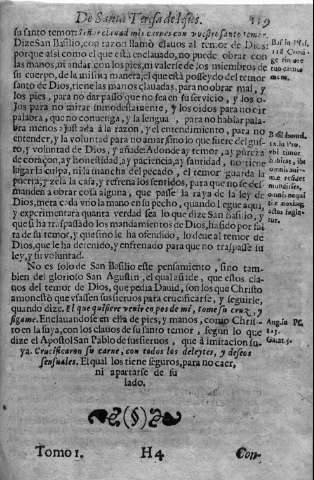 De Santa Teresa de Iesus. 119
su santo temor: Señor claud mis carnes con vuestro santo temor,
Dize San Basilio, con razon llamò clauos al temor de Dios;
porque assi como el que està enclauado, no puede obrar con
las manos, ni andar con los pies, ni valerse de los miembros de
su cuerpo, de la misma manera, el que està posseydo del temor
santo de Dios, tiene las manos clauadas, para no obrar mal, y
los pies, para no dar passo que no sea en su seruicio, y los o-
jos para no mirar inmodestamente, y los oidos para no oir
palabra, que no conuenga, y la lengua, para no hablar pala-
bra menos ajustada à la razon, y el entendimiento, para no
entender, y la voluntad para no amar sino lo que fuere del gus-
to, y voluntad de Dios, y añade: Adonde ay temor, ay pureza
de coraçon, ay honestidad, ay paciencia, ay santidad, no tiene
lugar la culpa, ni la mancha del pecado, el temor guarda la
puerta, y zela la casa, y refrena los sentidos, para que no se des-
manden a obrar cosa alguna, que passe la raya de la ley de
Dios, meta cada vno la mano en su pecho, quando llegue aqui,
y experimentarà quanta verdad sea lo que dize San Basilio, y
que si ha traspassado los mandamientos de Dios, ha sido por fal
ta de su temor, y que sino le ha ofendido, lo deue al temor de
Dios, que le ha detenido, y enfrenado para que no traspasse su
ley, y su voluntad.
No es solo de San Basilio este pensamiento, sino tam-
bien del glorioso San Agustin, el qual añide, que estos cla-
uos del temor de Dios, que pedia Dauid, son los que Christo
amonestò que vsassen sus sieruos para crucificarse, y seguirle,
quando dize. El que quisiere venir en pos de mi, tome su cruz, y
sigame. Enclauandose en ella de pies, y manos, como Chris-
to en la suya, con los clauos de su santo temor, segun lo que
dize el Apostol San Pablo de sus sieruos, que à imitacion su-
ya. Crucificaron su carne, con todos los deleytes, y deseos
sensuales. El qual los tiene seguros, para no caer,
ni apartarse de su
lado.
(§)
Tomo 1. H4 Con-
Aug. in Ps.
Galat. 5.